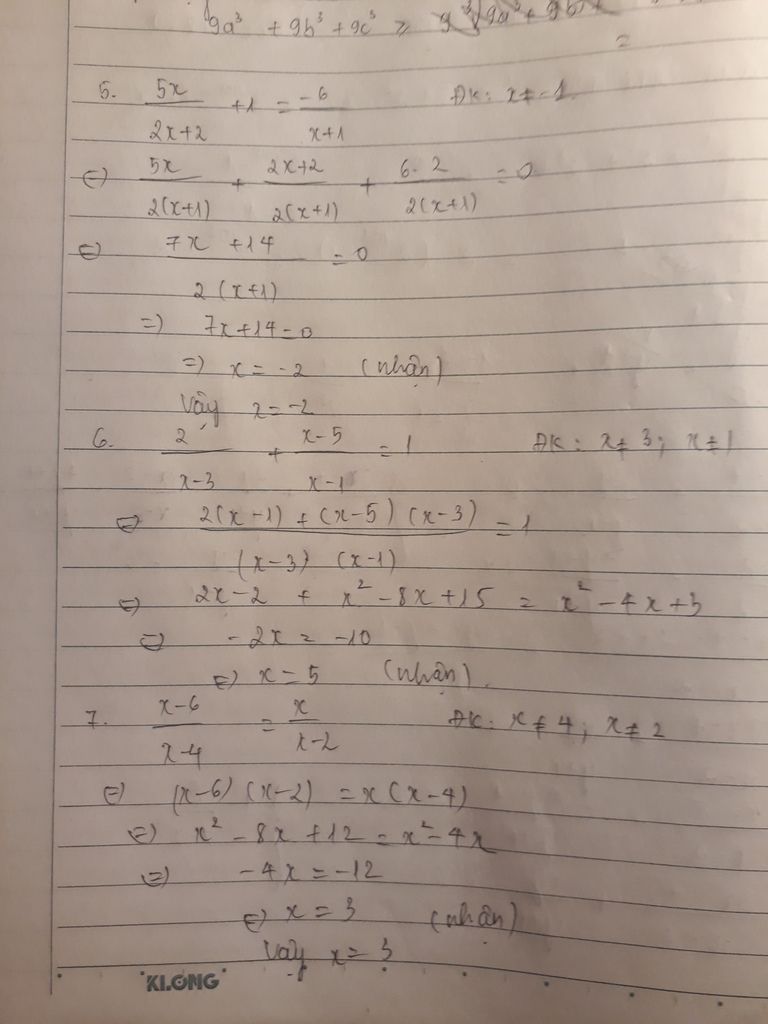 9a³ + 9b³ + 9c³ ≥
=
5. 5x/(2x+2) + 1 = -6/(x+1) ĐK: x ≠ -1
⇔ 5x/2(x+1) + 2x+2/2(x+1) + 6.2/2(x+1) = 0
⇔ 7x + 14/2(x+1) = 0
⇒ 7x + 14 = 0
⇒ x = -2 (nhận)
Vậy x = -2
6. 2/(x-3) + (x-5)/(x-1) = 1 ĐK: x ≠ 3; x ≠ 1
⇔ 2(x-1) + (x-5)(x-3)/(x-3)(x-1) = 1
⇔ 2x - 2 + x² - 8x + 15 = x² - 4x + 3
⇔ -2x = -10
⇔ x = 5 (nhận).
7. (x-6)/(x-4) = x/(x-2) ĐK: x ≠ 4; x ≠ 2
⇔ (x-6)(x-2) = x(x-4)
⇔ x² - 8x + 12 = x² - 4x
⇔ -4x = -12
⇔ x = 3 (nhận)
Vậy x = 3
KLONG